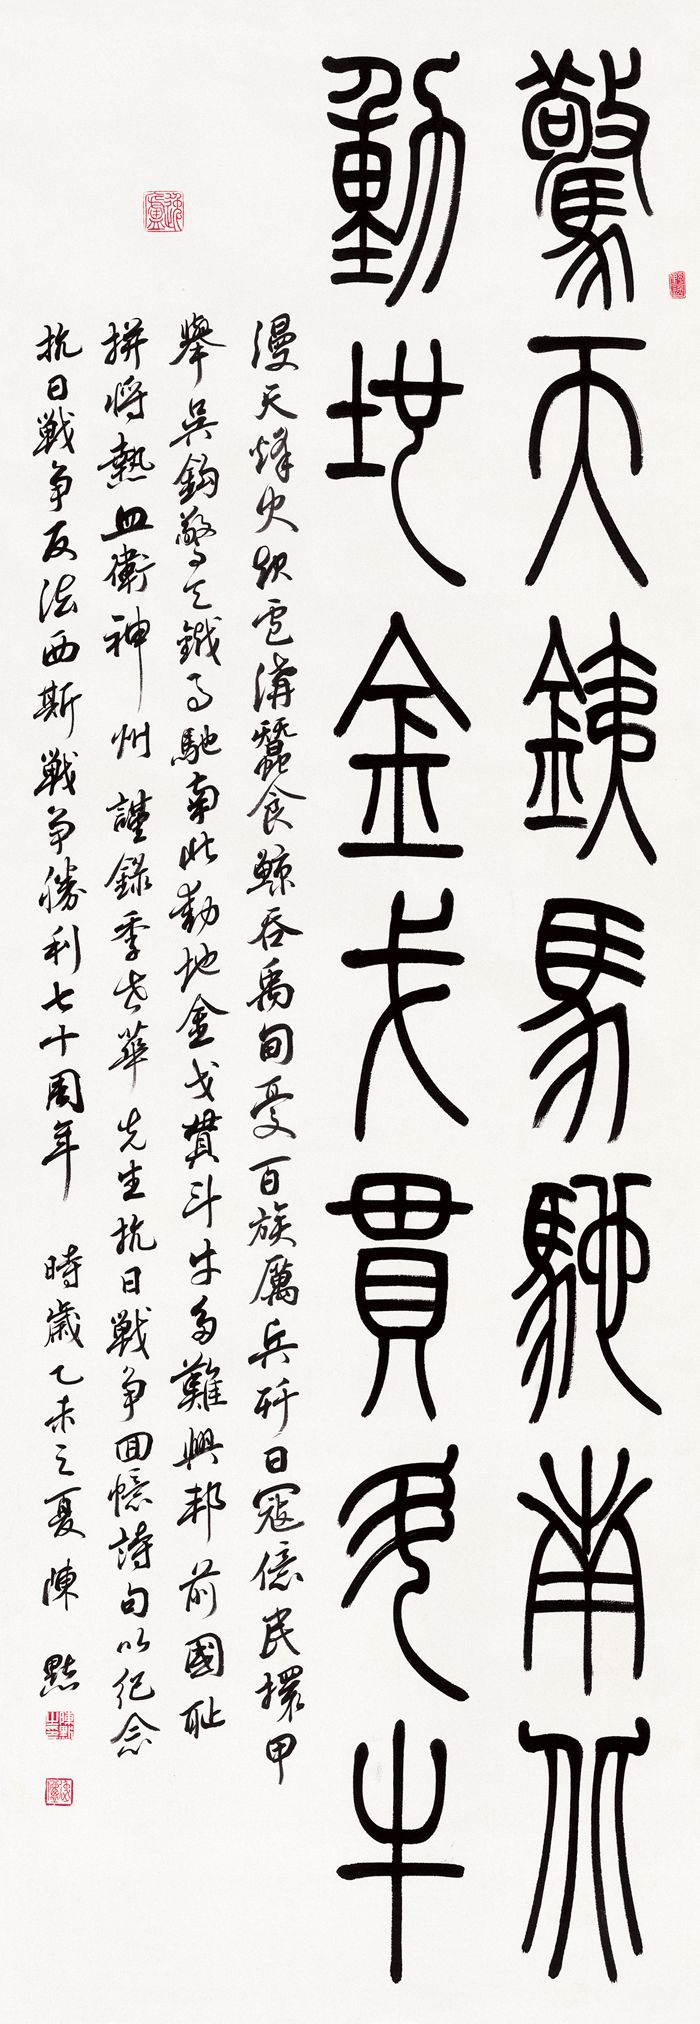 驚天鐵馬馳南北
動地金戈貫斗牛
漫天烽火起盧溝蠶食鯨吞禹甸憂百族厲兵歼日寇億民擐甲
舉吳鈎驚天鐵馬馳南北動地金戈貫斗牛多難興邦前國恥
拼將熱血衛神州 謹錄季世華先生抗日戰争回憶詩句以紀念
抗日戰争反法西斯戰争勝利七十周年 時歲乙未之夏 陳
逸盧